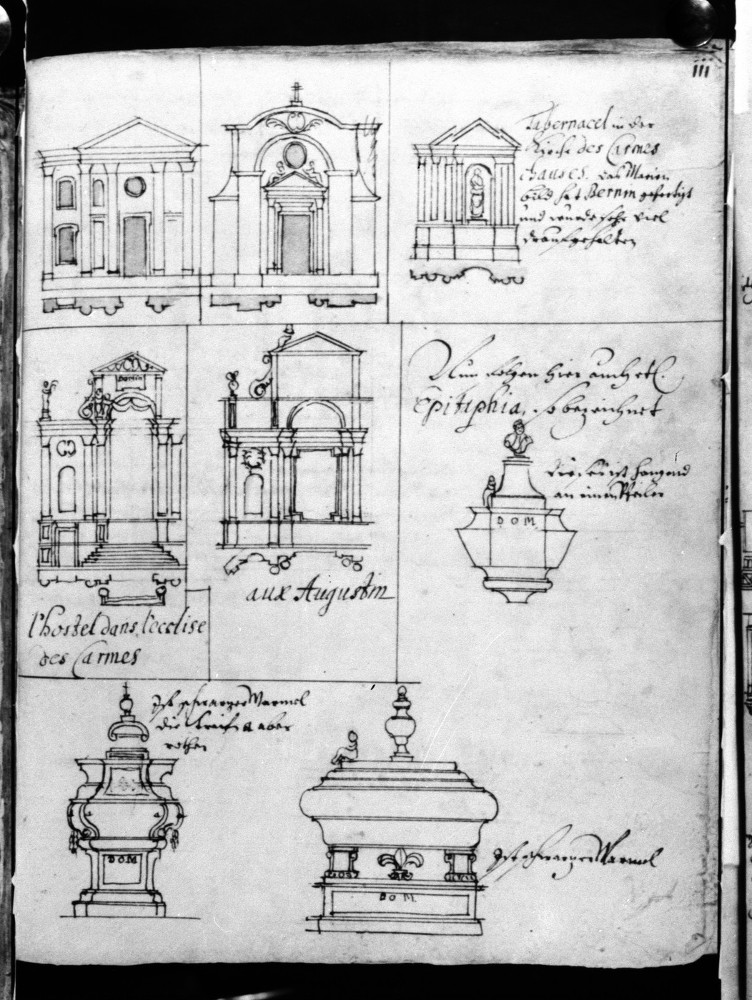 iii
Tabernacel in der
Kirche des Carmes
chauses. das Marien
bild hat Bernin gefertigt
und wurde sehr viel
drauf gehalten
Nun folgen hier auch etl.
Epitiphia, so bezeichnet
hangend
an einem Pfeiler
D O M
l'hostel dans l'ecclise
des Carmes
aux Augustin
Ist schwarzer Marmel
die aber
rother
D O M
D O M
Ist schwarzer Marmel